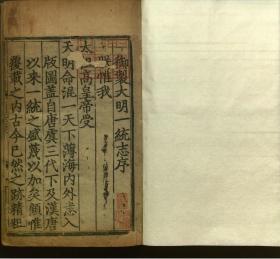 御製大明一統志序
朕惟我
太祖高皇帝受
天明命混一天下薄海内外悉入
版圖蓋自唐虞三代下及漢唐
以來一統之盛蔑以加矣顧惟
覆載之内古今已然之跡精粗